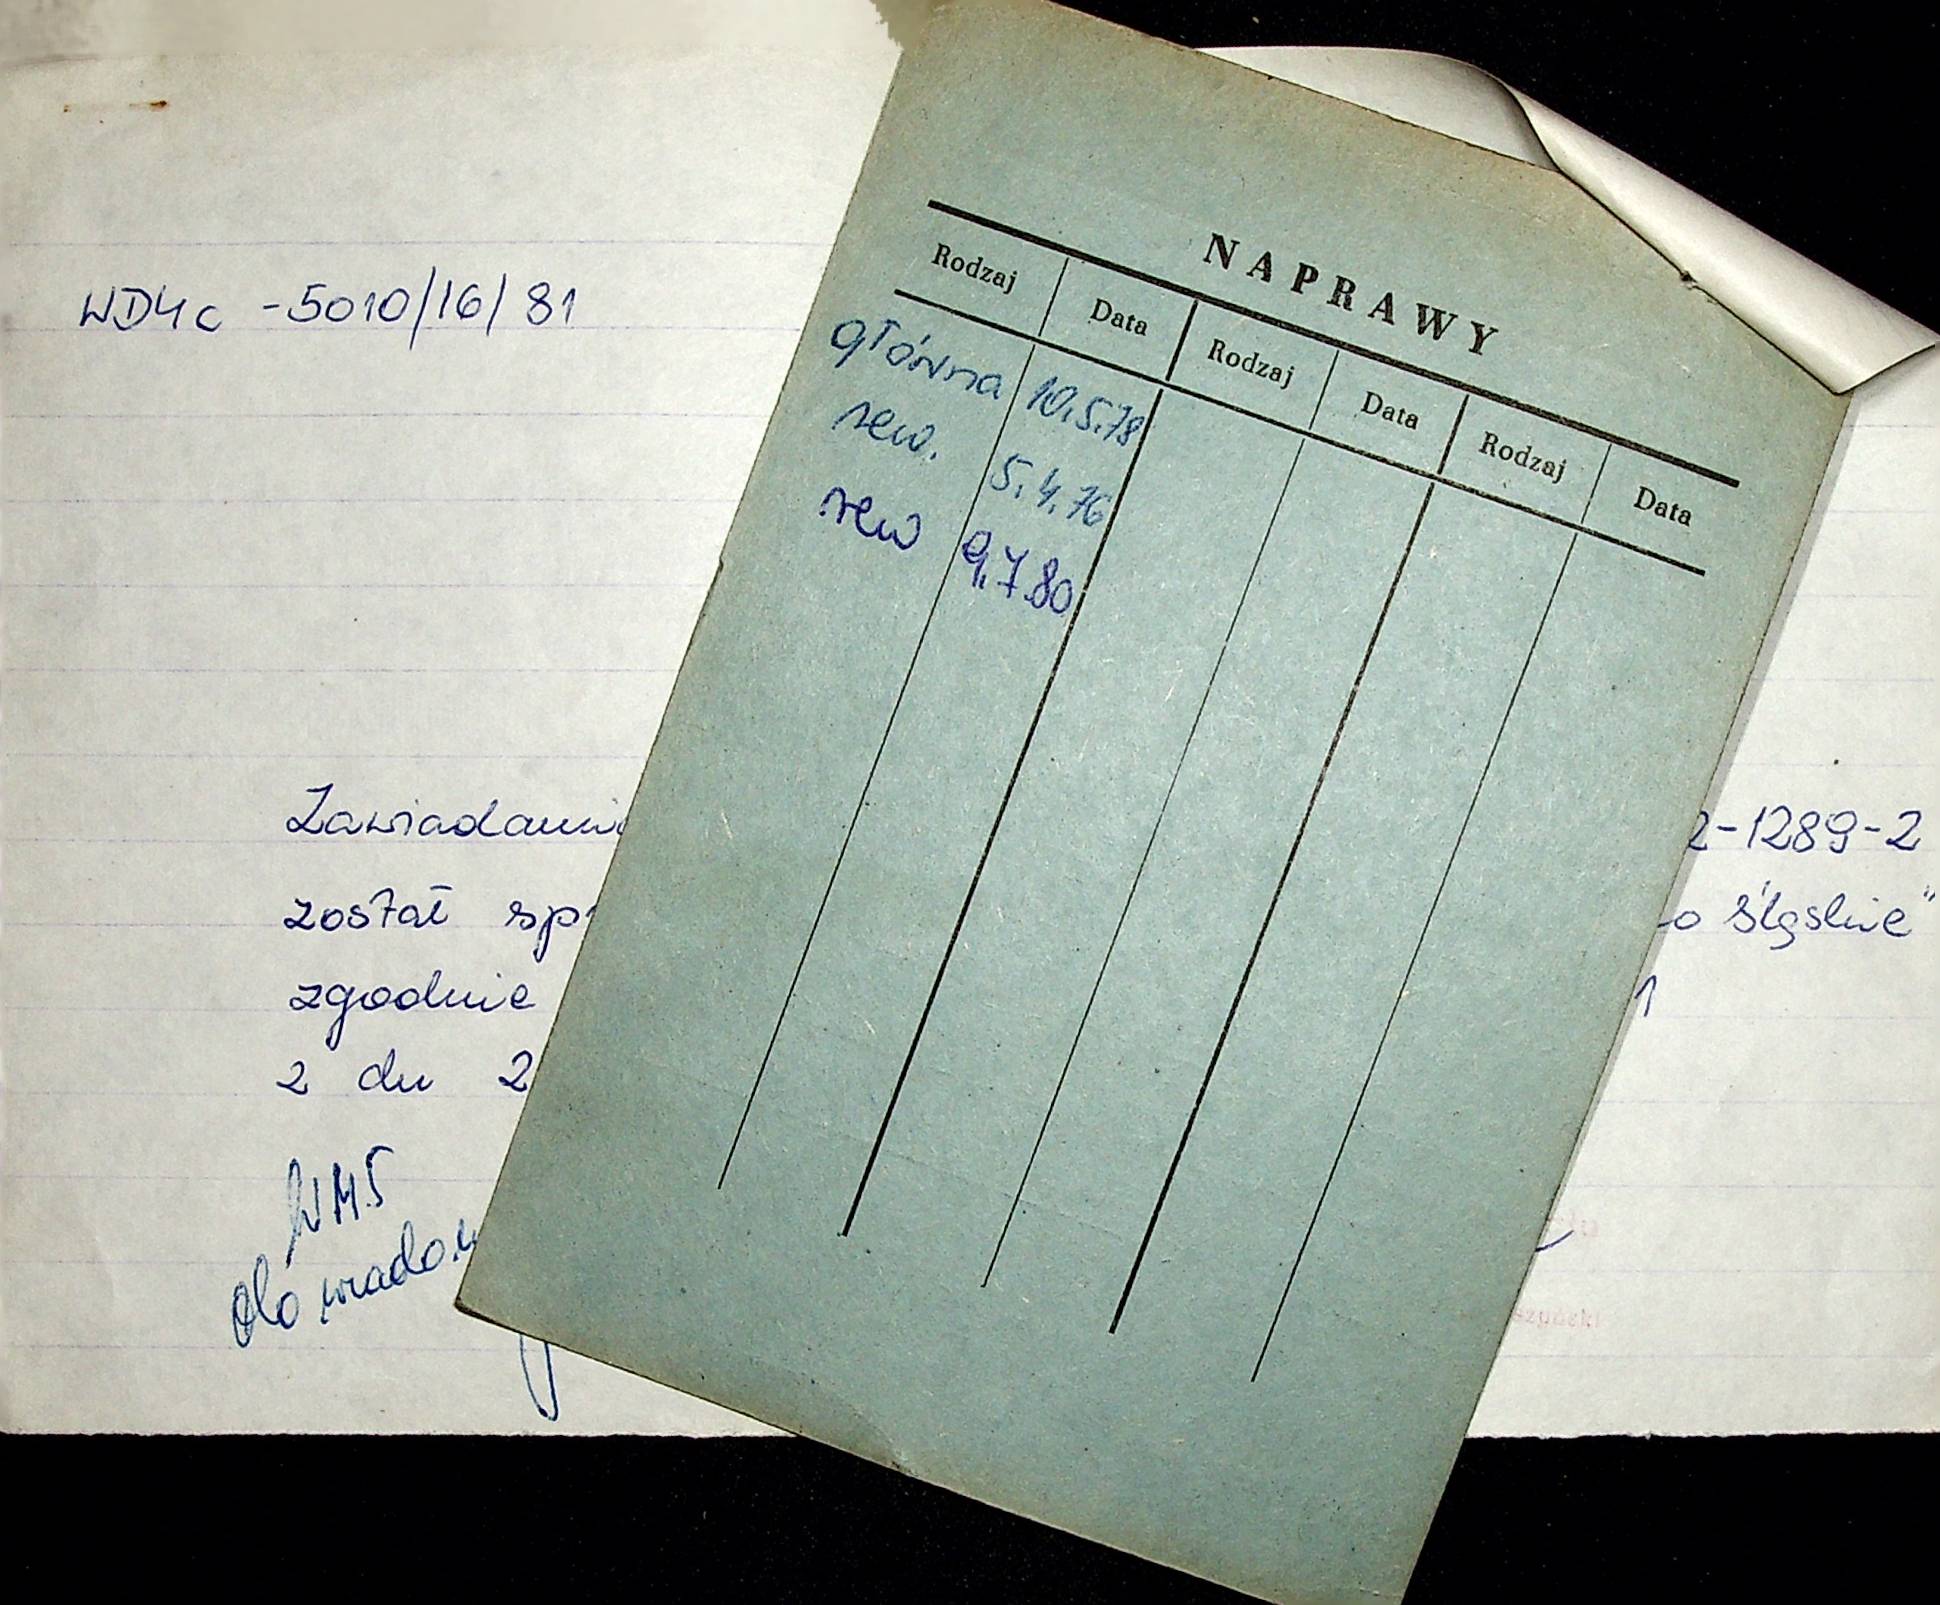 WD4c -5010/16/81
NAPRAWY
Rodzaj Data Rodzaj Data Rodzaj Data
główna 10.5.78
rew. 5.4.76
rew 9.7.80
Zawiadamia 2-1289-2
został spr o śląskie"
zgodnie 1
2 dn 2
WM5
do wiadom
szyński